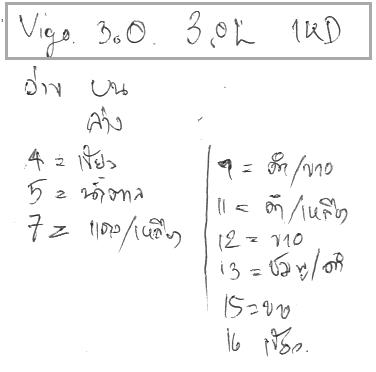 Vigo. 3.0. 3.0L 1KD
อ่าง บน
ล่าง
4 = เขียว
5 = น้ำตาล
7 = แดง/เหลือง
9 = ดำ/ขาว
11 = ดำ/เหลือง
12 = ขาว
13 = ชมพู/ดำ
15 = ขาว
16 เขียว.